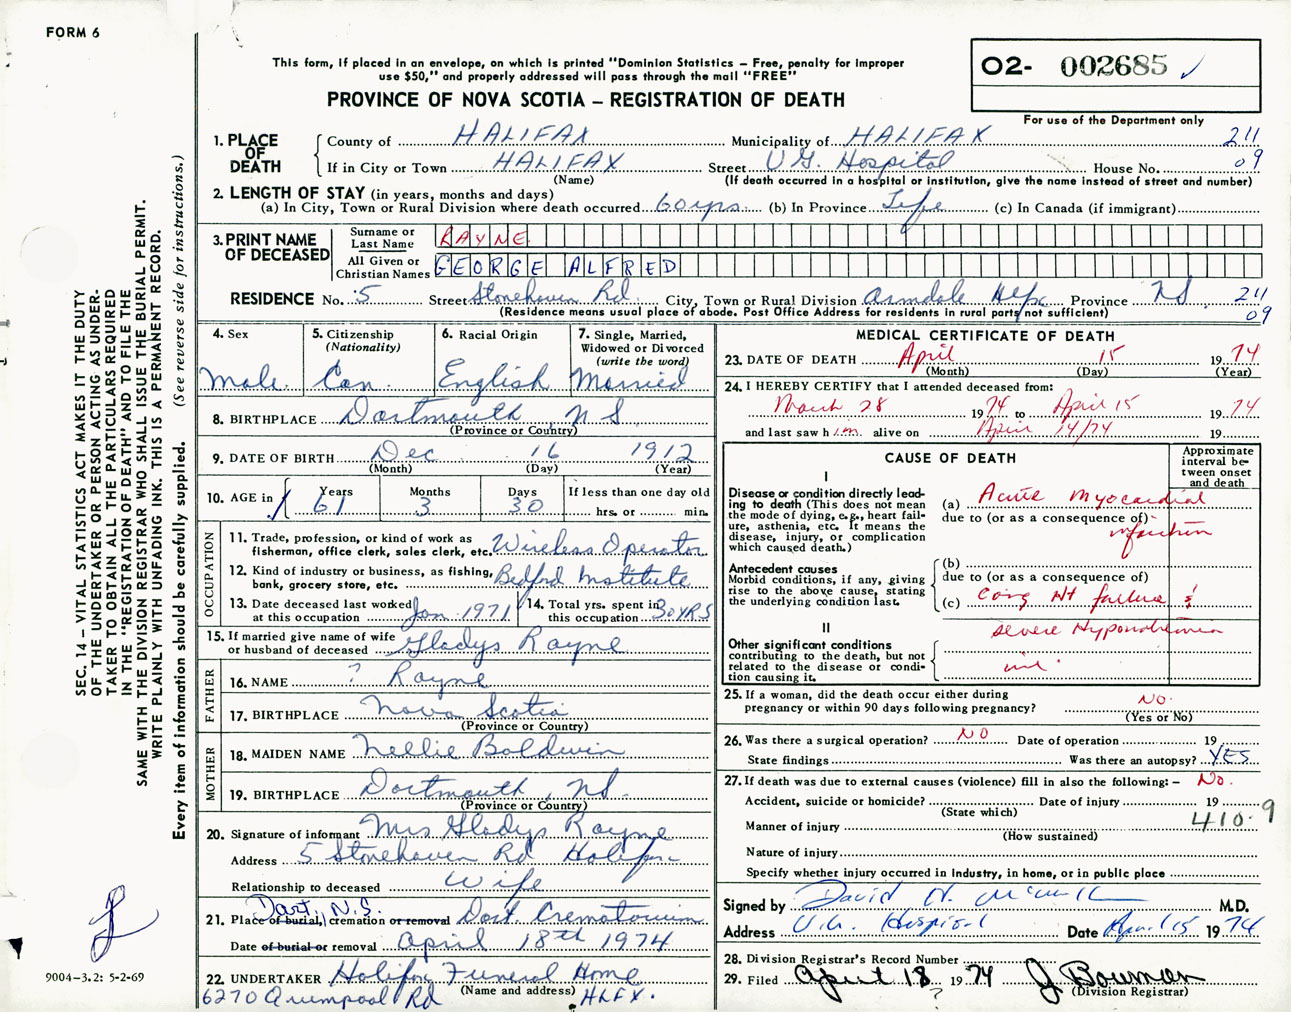 FORM 6
This form, if placed in an envelope, on which is printed "Dominion Statistics – Free, penalty for improper
use $50," and properly addressed will pass through the mail "FREE"
PROVINCE OF NOVA SCOTIA – REGISTRATION OF DEATH
02- 002685 ✓
For use of the Department only
SEC. 14 – VITAL STATISTICS ACT MAKES IT THE DUTY
OF THE UNDERTAKER OR PERSON ACTING AS UNDER-
TAKER TO OBTAIN ALL THE PARTICULARS REQUIRED
IN THE "REGISTRATION OF DEATH" AND TO FILE THE
SAME WITH THE DIVISION REGISTRAR WHO SHALL ISSUE THE BURIAL PERMIT.
WRITE PLAINLY WITH UNFADING INK. THIS IS A PERMANENT RECORD.
Every item of information should be carefully supplied. (See reverse side for instructions.)
1. PLACE OF DEATH
County of HALIFAX Municipality of HALIFAX 211
If in City or Town HALIFAX Street V G. Hospital House No. 09
(Name) (If death occurred in a hospital or institution, give the name instead of street and number)
2. LENGTH OF STAY (in years, months and days)
(a) In City, Town or Rural Division where death occurred 60 yrs. (b) In Province Life (c) In Canada (if immigrant)
3. PRINT NAME OF DECEASED
Surname or Last Name RAYNE
All Given or Christian Names GEORGE ALFRED
RESIDENCE No. 5 Street Stonehaven Rd. City, Town or Rural Division Armdale Hfx Province NS. 211
(Residence means usual place of abode. Post Office Address for residents in rural parts not sufficient) 09
4. Sex Male.
5. Citizenship (Nationality) Can.
6. Racial Origin English
7. Single, Married, Widowed or Divorced (write the word) Married
8. BIRTHPLACE Dartmouth, N S.
(Province or Country)
9. DATE OF BIRTH Dec 16 1912
(Month) (Day) (Year)
10. AGE in Years 61 Months 3 Days 30 If less than one day old
hrs. or min.
OCCUPATION
11. Trade, profession, or kind of work as
fisherman, office clerk, sales clerk, etc. Wireless Operator
12. Kind of industry or business, as fishing,
bank, grocery store, etc. Bedford Institute
13. Date deceased last worked
at this occupation Jan 1971
14. Total yrs. spent in
this occupation 30 YRS
15. If married give name of wife
or husband of deceased Gladys Rayne
FATHER
16. NAME ? Rayne
17. BIRTHPLACE Nova Scotia
(Province or Country)
MOTHER
18. MAIDEN NAME Nellie Baldwin
19. BIRTHPLACE Dartmouth, NS.
(Province or Country)
20. Signature of informant Mrs Gladys Rayne
Address 5 Stonehaven Rd Halifax
Relationship to deceased Wife
Dart. N.S.
21. Place of burial, cremation or removal Dart. Crematorium
Date of burial or removal April 18th 1974
22. UNDERTAKER Halifax Funeral Home
(Name and address)
6270 Rd HLFX.
MEDICAL CERTIFICATE OF DEATH
23. DATE OF DEATH April 15 1974
(Month) (Day) (Year)
24. I HEREBY CERTIFY that I attended deceased from:
March 28 1974 to April 15 1974
and last saw h im alive on April 14/74 19
CAUSE OF DEATH
Approximate interval between onset and death
I
Disease or condition directly lead-
ing to death (This does not mean
the mode of dying, e.g., heart fail-
ure, asthenia, etc. It means the
disease, injury, or complication
which caused death.)
(a) Acute myocardial
due to (or as a consequence of) infarction
Antecedent causes
Morbid conditions, if any, giving
rise to the above cause, stating
the underlying condition last.
(b)
due to (or as a consequence of)
(c) Cong Ht failure &
severe Hyponatremia
II
Other significant conditions
contributing to the death, but not
related to the disease or condi-
tion causing it.
nil
25. If a woman, did the death occur either during
pregnancy or within 90 days following pregnancy? NO.
(Yes or No)
26. Was there a surgical operation? NO Date of operation 19
State findings Was there an autopsy? YES
27. If death was due to external causes (violence) fill in also the following: – No.
Accident, suicide or homicide? Date of injury 19
(State which)
410.9
Manner of injury
(How sustained)
Nature of injury
Specify whether injury occurred in industry, in home, or in public place
Signed by David N. M.D.
Address V.G. Hospital Date April 15 1974
28. Division Registrar's Record Number
29. Filed April 18 1974 J Bowman
? (Division Registrar)
9004-3.2: 5-2-69